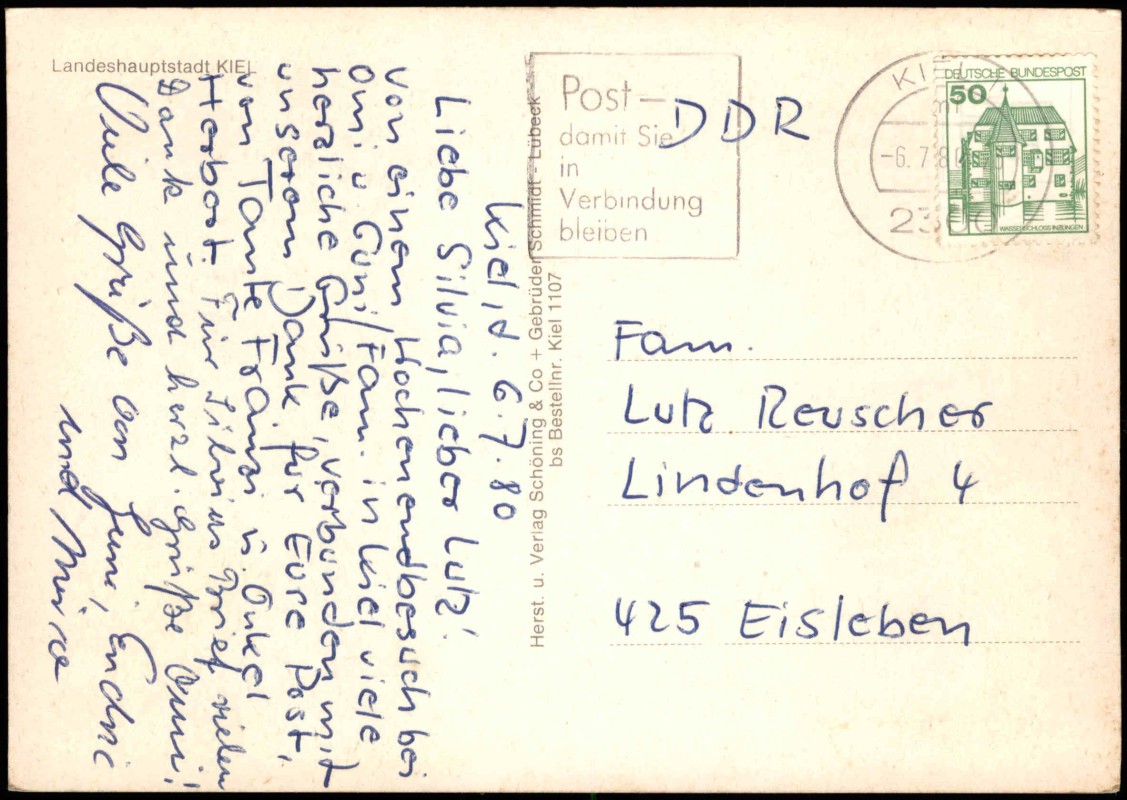 Landeshauptstadt KIEL
Kiel, d. 6.7.80
Liebe Silvia, lieber Lutz!
Von einem Wochenendbesuch bei
Omi u. Guni/Fam. in Kiel viele
herzliche Grüße, verbunden mit
unserem Dank für Eure Post,
von Tante Fränzi u. Onkel
Herbert. Für Silvias Brief vielen
Dank und herzl. Grüße Omi!
Viele Grüße von Guni,
und
Herst. u. Verlag Schöning & Co + Gebrüder Schmidt - Lübeck
bs Bestellnr. Kiel 1107
Post-
damit Sie
in
Verbindung
bleiben
DDR
KIEL
-6.7.80
23
DEUTSCHE BUNDESPOST
50
WASSERSCHLOSS INZLINGEN
Fam.
Lutz Reuscher
Lindenhof 4
425 Eisleben